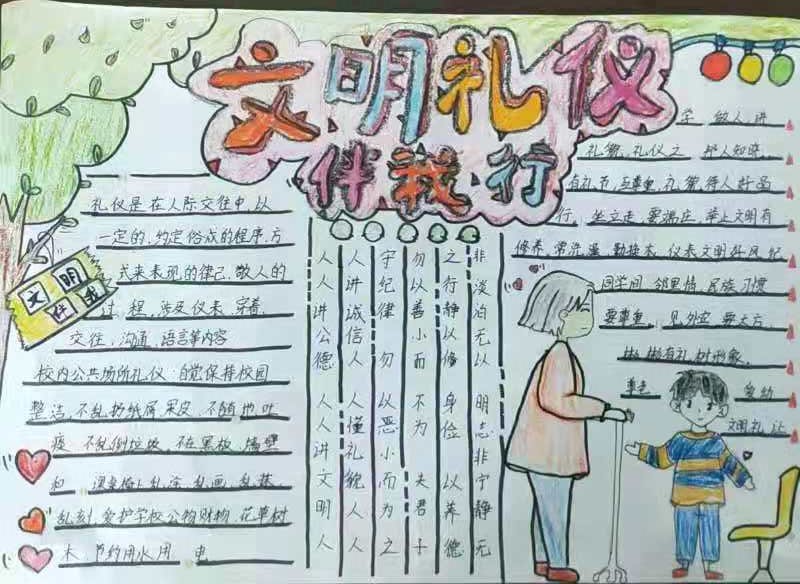 文明礼仪
伴我行
文明
伴我
礼仪是在人际交往中,以
一定的,约定俗成的程序,方
式来表现的律己,敬人的
过程,涉及仪表,穿着,
交往,沟通,语言等内容
校内公共场所礼仪:自觉保持校园
整洁,不乱扔纸屑,果皮,不随地吐
痰 不乱倒垃圾,不在黑板,墙壁
和 课桌椅上乱涂,乱画,乱抹
乱刻,爱护学校公物财物,花草树
木,节约用水用 电
人人讲公德人人讲文明人
人讲诚信人人懂礼貌人人
守纪律 勿以恶小而为之
勿以善小而不为 夫君子
之行静以修身俭以养德
非淡泊无以明志非宁静无
学 做人 讲
礼貌,礼仪之
有礼节,与尊重,礼貌待人
行,坐立走,要端庄,举止文明有
修养,常洗澡,勤换衣,仪表文明好风纪
同学间 邻里情,民族习惯
要尊重 见外宾,要大方,
彬彬有礼,树形象
尊老 爱幼
文明礼让